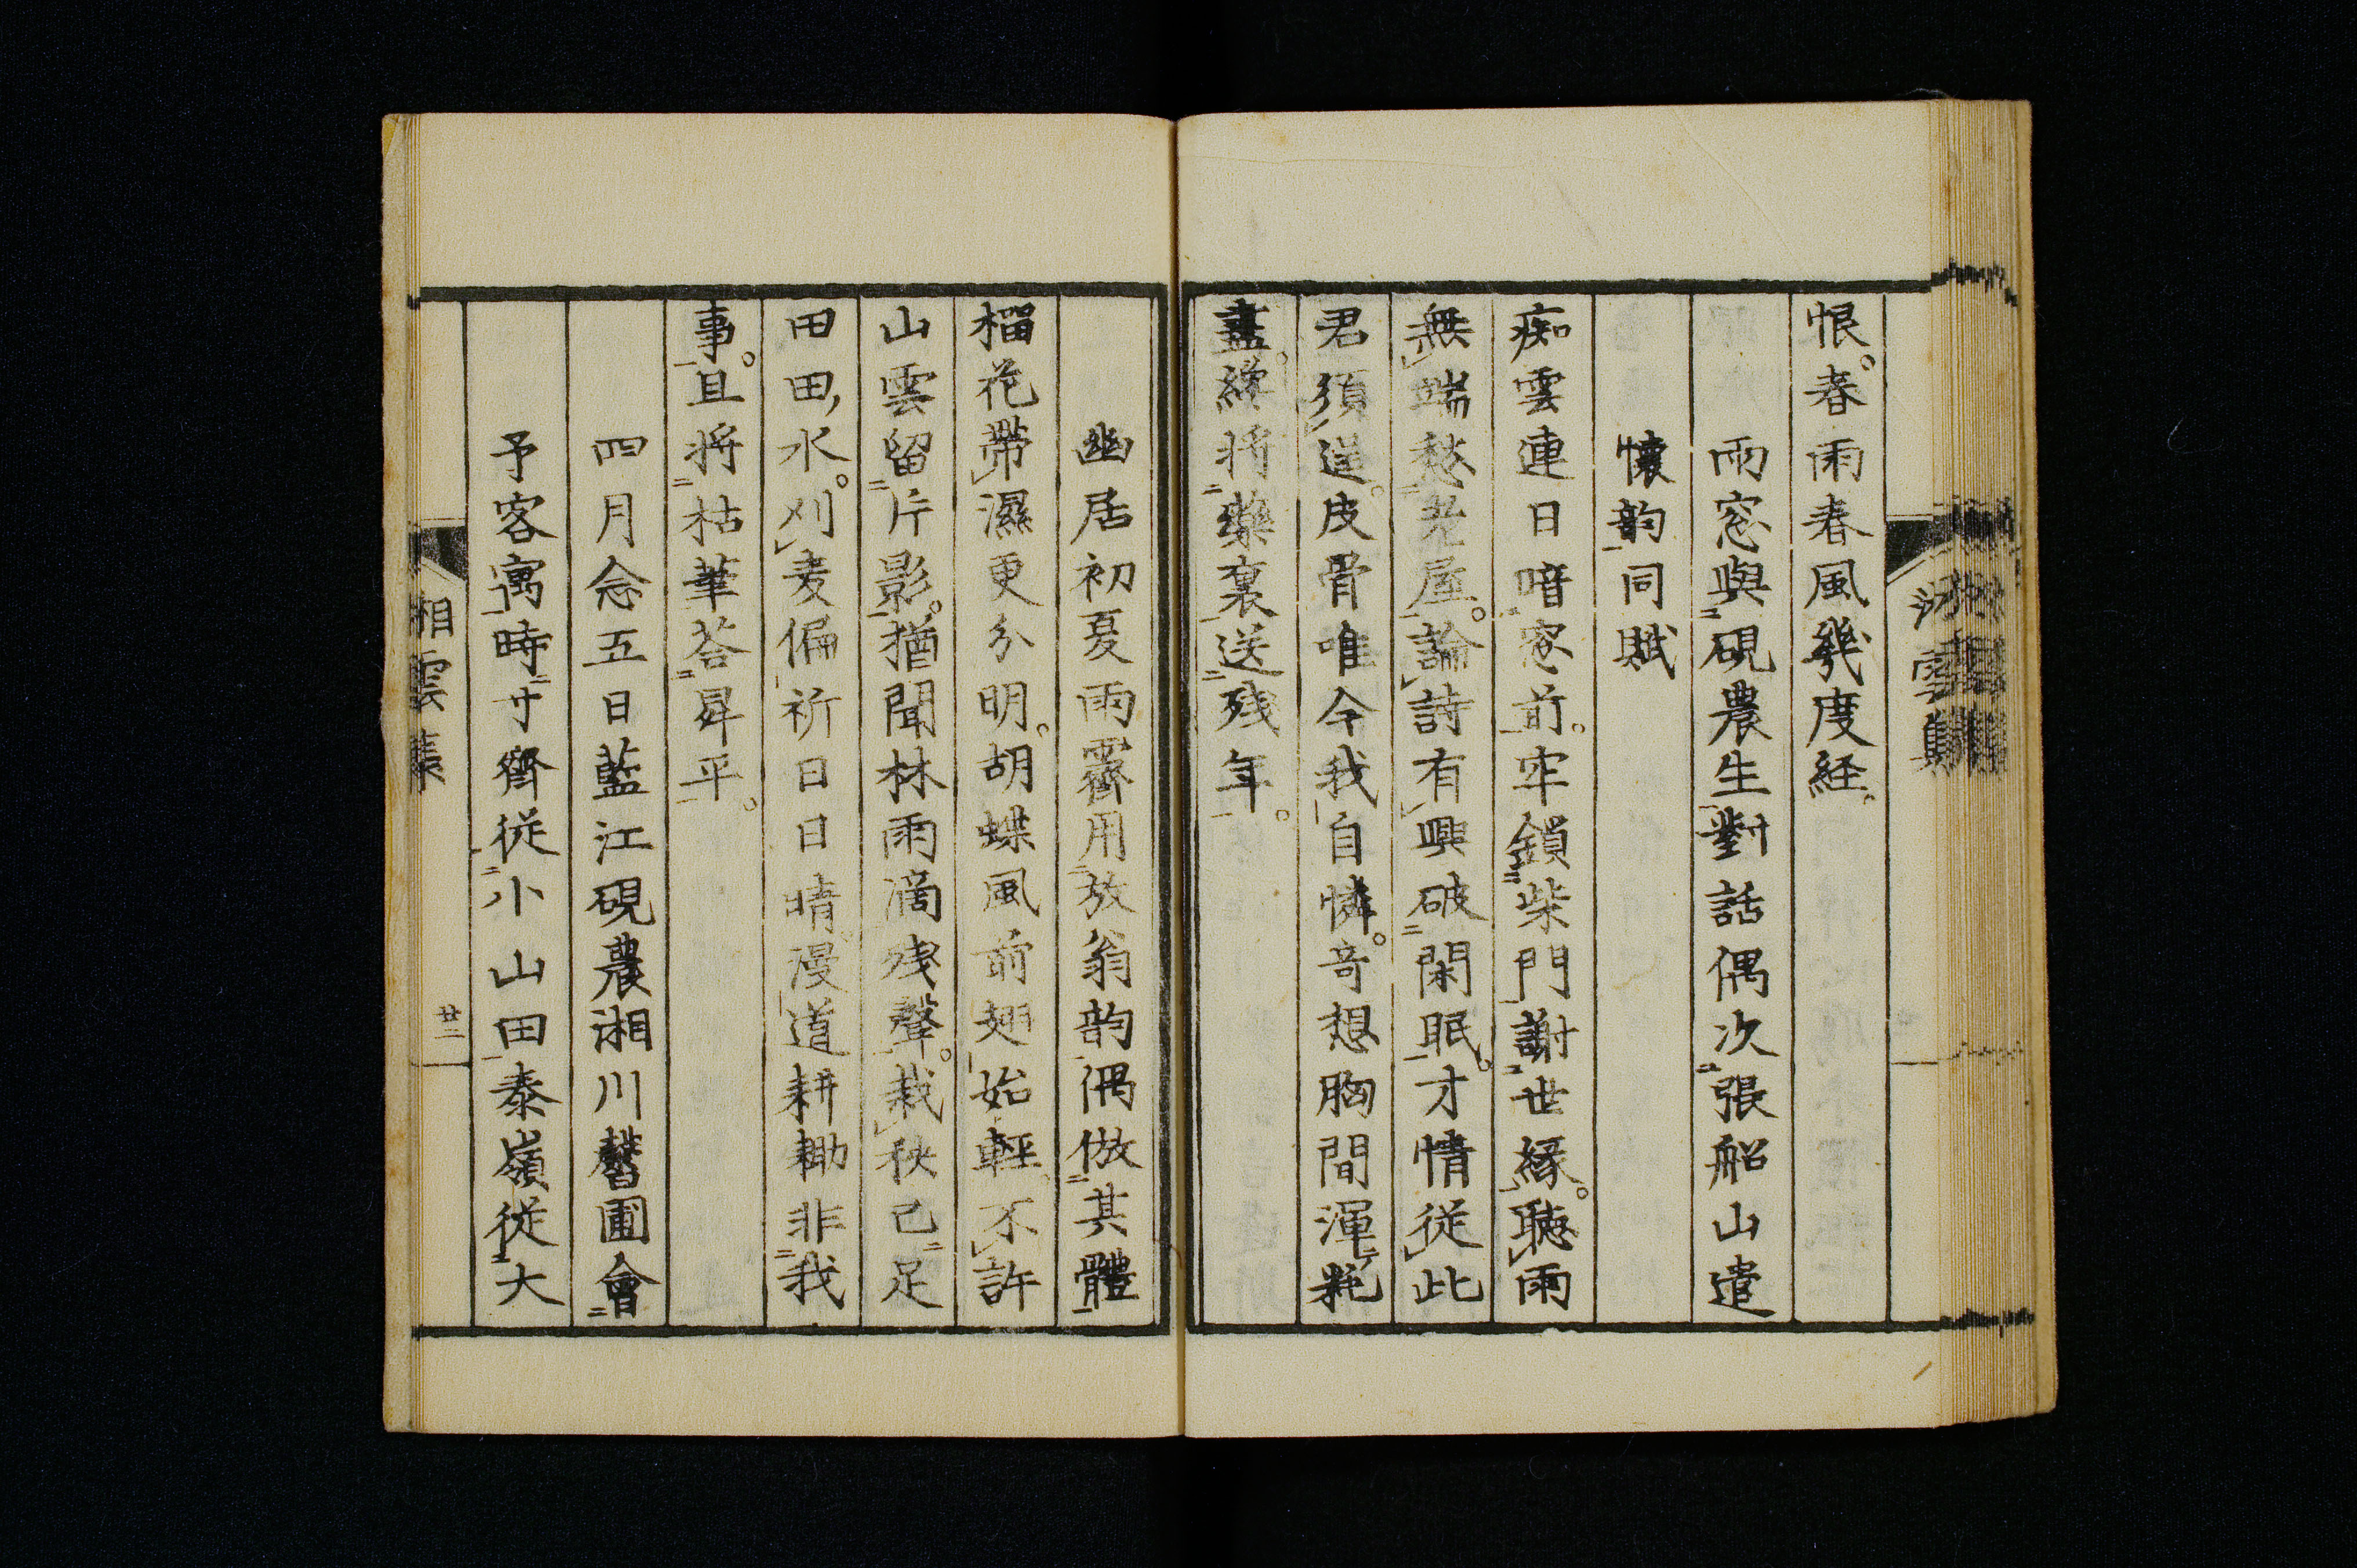 恨。春雨春風幾度経。
雨窓與硯農生對話偶次張船山遣
懐韵同賦
痴雲連日喑窓前。牢鎖柴門謝世縁。聴雨
無端愁老屋。論詩有興破閑眠。才情従此
君須送。皮骨唯今我自憐。奇想胸間渾耗
盡。縁将藥裏送残年。
幽居初夏雨霽用放翁韵偶倣其體
榴花帯濕更分明。胡蝶風前翅始輕。不許
山雲留片影。猶聞林雨滴残聲。栽秧已足
田田水。刈麦偏祈日日晴。漫道耕耡非我
事。且将枯筆荅昇平。
四月念五日藍江硯農湘川馨圃會
予客寓時寸齊従小山田泰嶺従大
湘雲集
廿二